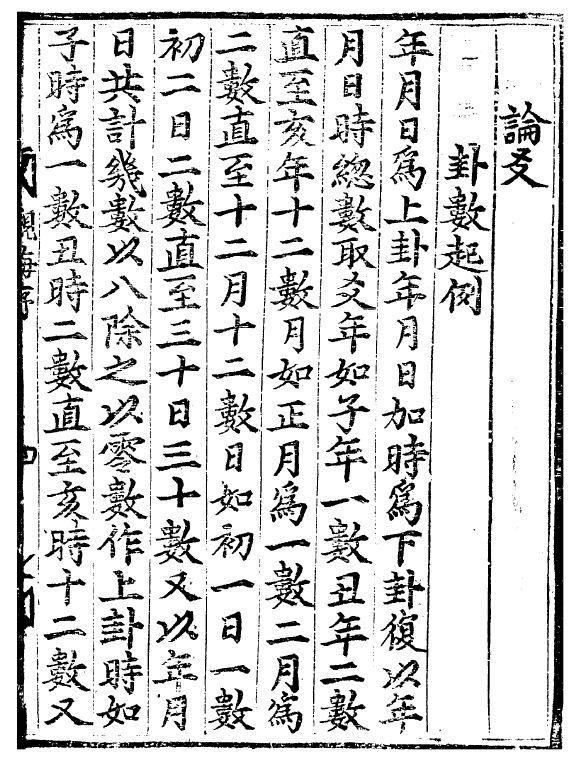 論爻
卦數起例
年月日爲上卦年月日加時爲下卦復以年
月日時總數取爻年如子年一數丑年二數
直至亥年十二數月如正月爲一數二月爲
二數直至十二月十二數日如初一日一數
初二日二數直至三十日三十數又以年月
日共計幾數以八除之以零數作上卦時如
子時爲一數丑時二數直至亥時十二數又